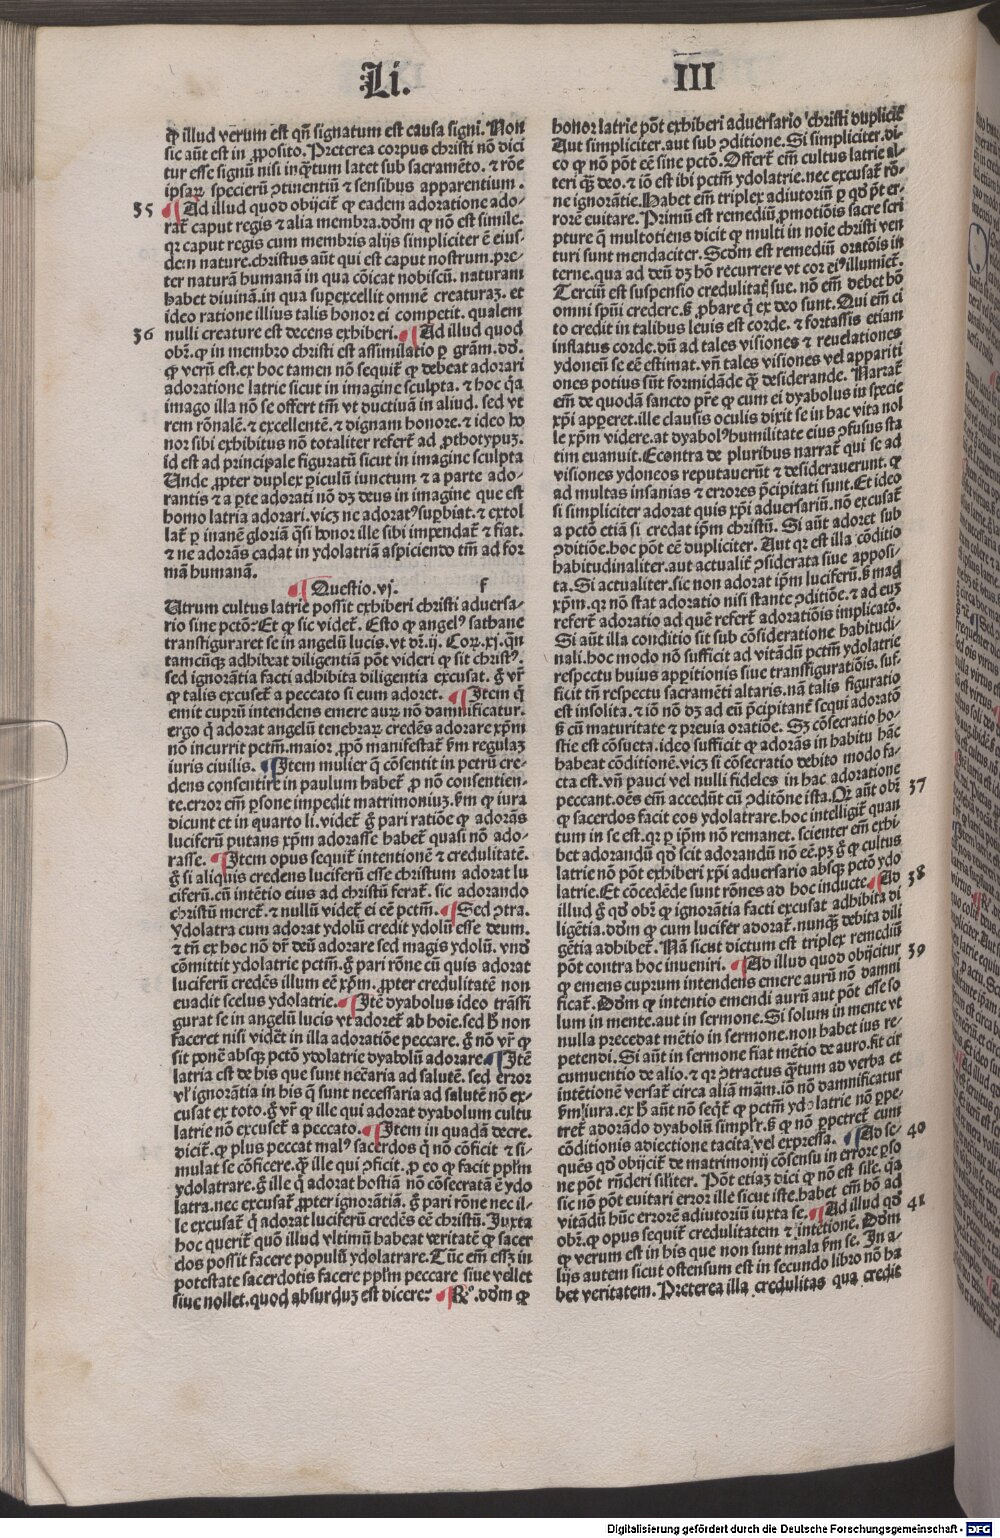 Li. III
ꝙ illud verum est qñ signatum est causa signi. Non
sic aūt est in ꝓposito. Preterea corpus christi nō dici
tur esse signū nisi inqͣtum latet sub sacramēto. ⁊ rōe
ipsaꝝ specierū ↄtinentiū ⁊ sensibus apparentium.
35 ¶ Ad illud quod obijcit᷑ ꝙ eadem adoratione ado-
rat᷑ caput regis ⁊ alia membra. dōm ꝙ nō est simile.
qꝛ caput regis cum membris alijs simpliciter ē eius-
dem nature. christus aūt qui est caput nostrum. pre-
ter naturā humanā in qua cōicat nobiscū. naturam
habet diuinā. in qua superexcellit omnē creaturaꝫ. et
ideo ratione illius talis honor ei competit. qualem
36 nulli creature est decens exhiberi. ¶ Ad illud quod
obȷ̄. ꝙ in membro christi est assimilatio ꝑ grām. dō.
ꝙ verū est. ex hoc tamen nō sequit᷑ ꝙ debeat adorari
adoratione latrie sicut in imagine sculpta. ⁊ hoc qͥa
imago illa nō se offert tm̄ vt ductiuā in aliud. sed vt
rem rōnalē. ⁊ excellentē. ⁊ dignam honore. ⁊ ideo ho
nor sibi exhibitus nō totaliter refert᷑ ad ꝓthotypuꝫ.
id est ad principale figuratū sicut in imagine sculpta
Unde ꝓpter duplex piculū iunctum ⁊ a parte ado-
rantis ⁊ a parte adorati nō dꝫ deus in imagine que est
homo latria adorari. vicꝫ ne adoratꝰ supbiat. ⁊ extol
lat᷑ ꝑ inanē gloriā qͣsi honor ille sibi impendat᷑ ⁊ fiat.
⁊ ne adorās cadat in ydolatriā aspiciendo tm̄ ad for
mā humanā.
¶ Questio. vj. f
Utrum cultus latrie possit exhiberi christi aduersa-
rio sine pctō? Et ꝙ sic videt᷑. Esto ꝙ angelꝰ sathane
transfiguraret se in angelū lucis. vt dȓ. ij. Coꝝ. xj. qñ
tamcūqꝫ adhibeat diligentiā pōt videri ꝙ sit christꝰ.
sed ignorātia facti adhibita diligentia excusat. g̊ vȓ
ꝙ talis excuset᷑ a peccato si eum adoret. ¶ Item qͥ
emit cuprū intendens emere auꝝ nō damnificatur.
ergo qͥ adorat angelū tenebraꝝ credēs adorare xp̄m
nō incurrit pctm̄. maior ꝓpō manifestat᷑ ẜm regulaꝫ
iuris ciuilis. ¶ Item mulier qͥ cōsentit in petrū cre-
dens consentire in paulum habet᷑ ꝓ nō consentien-
te. error em̄ ꝑsone impedit matrimoniuꝫ. ẜm ꝙ iura
dicunt et in quarto li. videt᷑ g̊ pari ratiōe ꝙ adorās
luciferū putans xp̄m adorasse habet᷑ quasi nō ado-
rasse. ¶ Item opus sequit᷑ intentionē ⁊ credulitatē.
g̊ si aliquis credens luciferū esse christum adorat lu
ciferū. cū intētio eius ad christū ferat᷑. sic adorando
christū meret᷑. ⁊ nullū videt᷑ ei eē pctm̄. ¶ Sed ↄtra.
ydolatra cum adorat ydolū credit ydolū esse deum.
⁊ tn̄ ex hoc nō dȓ deū adorare sed magis ydolū. vnd
cōmittit ydolatrie pctm̄. g̊ pari rōne cū quis adorat
luciferū credēs illum eē xp̄m. ꝓpter credulitatē non
euadit scelus ydolatrie. ¶ Itē dyabolus ideo trāsfi
gurat se in angelū lucis vt adoret᷑ ab hoīe. sed h̊ non
faceret nisi vidēt in illa adoratiōe peccare. g̊ nō vȓ ꝙ
sit ponē absqꝫ pctō ydolatrie dyabolū adorare. ¶ Itē
latria est de his que sunt nec̄aria ad salutē. sed error
vl̓ ignorātia in his q̄ sunt necessaria ad salutē nō ex-
cusat ex toto. g̊ vȓ ꝙ ille qui adorat dyabolum cultu
latrie nō excuset᷑ a peccato. ¶ Item in quadā decre.
dicit᷑. ꝙ plus peccat malꝰ sacerdos qͥ nō cōficit ⁊ si-
mulat se cōficere. qͣꝫ ille qui ↄficit. ꝓ eo ꝙ facit pplm̄
ydolatrare. g̊ ille qͥ adorat hostiā nō cōsecratā ē ydo
latra. nec excusat᷑ ꝓpter ignorātiā. g̊ pari rōne nec il-
le excusat᷑ qͥ adorat luciferū credēs eē christū. Juxta
hoc querit᷑ quō illud vltimū habeat veritatē ꝙ sacer
dos possit facere populū ydolatrare. Tūc em̄ esset in
potestate sacerdotis facere pplm̄ peccare siue vellet
siue nollet. quod absurduꝫ est dicere. ¶ Rͦ. dōm ꝙ
honor latrie pōt exhiberi aduersario christi duplicit᷑
Aut simpliciter. aut sub ↄditione. Si simpliciter. di-
co ꝙ nō pōt eē sine pctō. Offert᷑ em̄ cultus latrie al-
teri qͣꝫ deo. ⁊ iō est ibi pctm̄ ydolatrie. nec excusat᷑ rō-
ne ignorātie. Habet em̄ triplex adiutoriū ꝑ qd̓ pōt er-
rorē euitare. Primū est remediū ꝓmotiōis sacre scri
pture q̄ multotiens dicit ꝙ multi in noīe christi ven
turi sunt mendaciter. Scd̓m est remediū oratōis in
terne. qua ad deū dꝫ hō recurrere vt cor eiꝰ illumiet᷑.
Terciū est suspensio credulitatꝭ sue. nō em̄ debet hō
omni spūi credere. ẜ ꝓbare q̄ ex deo sunt. Qui em̄ ci
to credit in talibus leuis est corde. ⁊ fortassis etiam
inflatus corde. dū ad tales visiones ⁊ reuelationes
ydoneū se eē estimat. vn̄ tales visiones vel appariti
ones potius sūt formidāde qͣꝫ desiderande. Narrat᷑
em̄ de quodā sancto pr̄e ꝙ cum ei dyabolus in specie
xp̄i apperet. ille clausis oculis dixit se in hac vita nol
le xp̄m videre. at dyabolꝰ humilitate eius ↄfusus sta
tim euanuit. Econtra de pluribus narrat᷑ qui se ad
visiones ydoneos reputauerūt ⁊ desiderauerunt. ꝙ
ad multas insanias ⁊ errores p̄cipitati sunt. Et ideo
si simpliciter adorat quis xp̄i aduersariū. nō excusat᷑
a pctō etiā si credat ip̄m christū. Si aūt adoret sub
ↄditiōe. hoc pōt eē dupliciter. Aut qꝛ est illa cōditio
habitudinaliter. aut actualit᷑ ↄsiderata siue apposi-
ta. Si actualiter. sic non adorat ip̄m luciferū. ẜ mag̓
xp̄m. qꝛ nō stat adoratio nisi stante ↄditiōe. ⁊ ad euꝫ
refert᷑ adoratio ad quē refert᷑ adoratiōis implicatō.
Si aūt illa conditio sit sub cōsideratione habitudi-
nali. hoc modo nō sufficit ad vitādū pctm̄ ydolatrie
respectu huius apparitionis siue transfiguratiōis. suf-
ficit tn̄ respectu sacramēti altaris. nā talis figuratio
est insolita. ⁊ iō nō dꝫ ad eū p̄cipitant᷑ sequi adoratō
ẜ cū maturitate ⁊ preuia oratiōe. Sꝫ cōsecratio ho-
stie est cōsueta. ideo sufficit ꝙ adorās in habitu hāc
habeat cōditionē. vicꝫ si cōsecratio debito modo fa-
cta est. vn̄ pauci vel nulli fideles in hac adoratione
37 peccant. oēs em̄ accedūt cū ↄditōne ista. Qꝛ aūt obȷ̄
ꝙ sacerdos facit eos ydolatrare. hoc intelligit᷑ quan
tum in se est. qꝛ ꝑ ip̄m nō remanet. scienter em̄ exhi-
bet adorandū qd̓ scit adorandū nō eē. pꝫ g̊ ꝙ cultus
latrie nō pōt exhiberi xp̄i aduersario absqꝫ pctō ydo
38 latrie. Et cōcedēde sunt rōnes ad hoc inducte. ¶ Ad
illud g̊ qd̓ obȷ̄. ꝙ ignorātia facti excusat adhibita di
ligētia. dōm ꝙ cum lucifer adorat᷑. nunqͣꝫ debita dili
gētia adhibet᷑. Nā sicut dictum est triplex remediū
39 pōt contra hoc inueniri. ¶ Ad illud quod obijcitur
ꝙ emens cuprum intendens emere aurū nō damni
ficat᷑. Dōm ꝙ intentio emendi aurū aut pōt esse so
lum in mente. aut in sermone. Si solum in mente vt
nulla precedat mētio in sermone. non habet ius re-
petendi. Si aūt in sermone fiat mētio de auro. fit cir
cumuentio de alio. ⁊ qꝛ ↄtractus qͣtum ad verba et
intētionē versat᷑ circa aliā mām. iō nō damnificatur
ẜm iura. ex h̊ aūt non seqͥt᷑ ꝙ pctm̄ ydolatrie nō ꝑpe-
tret᷑ adorādo dyabolū simplr̄. ẜ ꝙ nō ꝑpetret᷑ cum
40 cōditionis adiectione tacita vel expressa. ¶ Ad se-
quēs qd̓ obijcit᷑ de matrimonij cōsensu in errore ꝑso
ne pōt rn̄deri siliter. Pōt etiaꝫ dici ꝙ nō est sile. qͥa
sic nō pōt euitari error ille sicut iste. habet em̄ hō ad
41 vitādū hūc errorē adiutoriū iuxta se. ¶ Ad illud qd̓
obȷ̄. ꝙ opus sequit᷑ credulitatem ⁊ intētionē. Dōm
ꝙ verum est in his que non sunt mala ẜm se. In a-
lijs autem sicut ostensum est in secundo libro nō ha
bet veritatem. Preterea illa credulitas qua credit
Digitalisierung gefördert durch die Deutsche Forschungsgemeinschaft - DFG